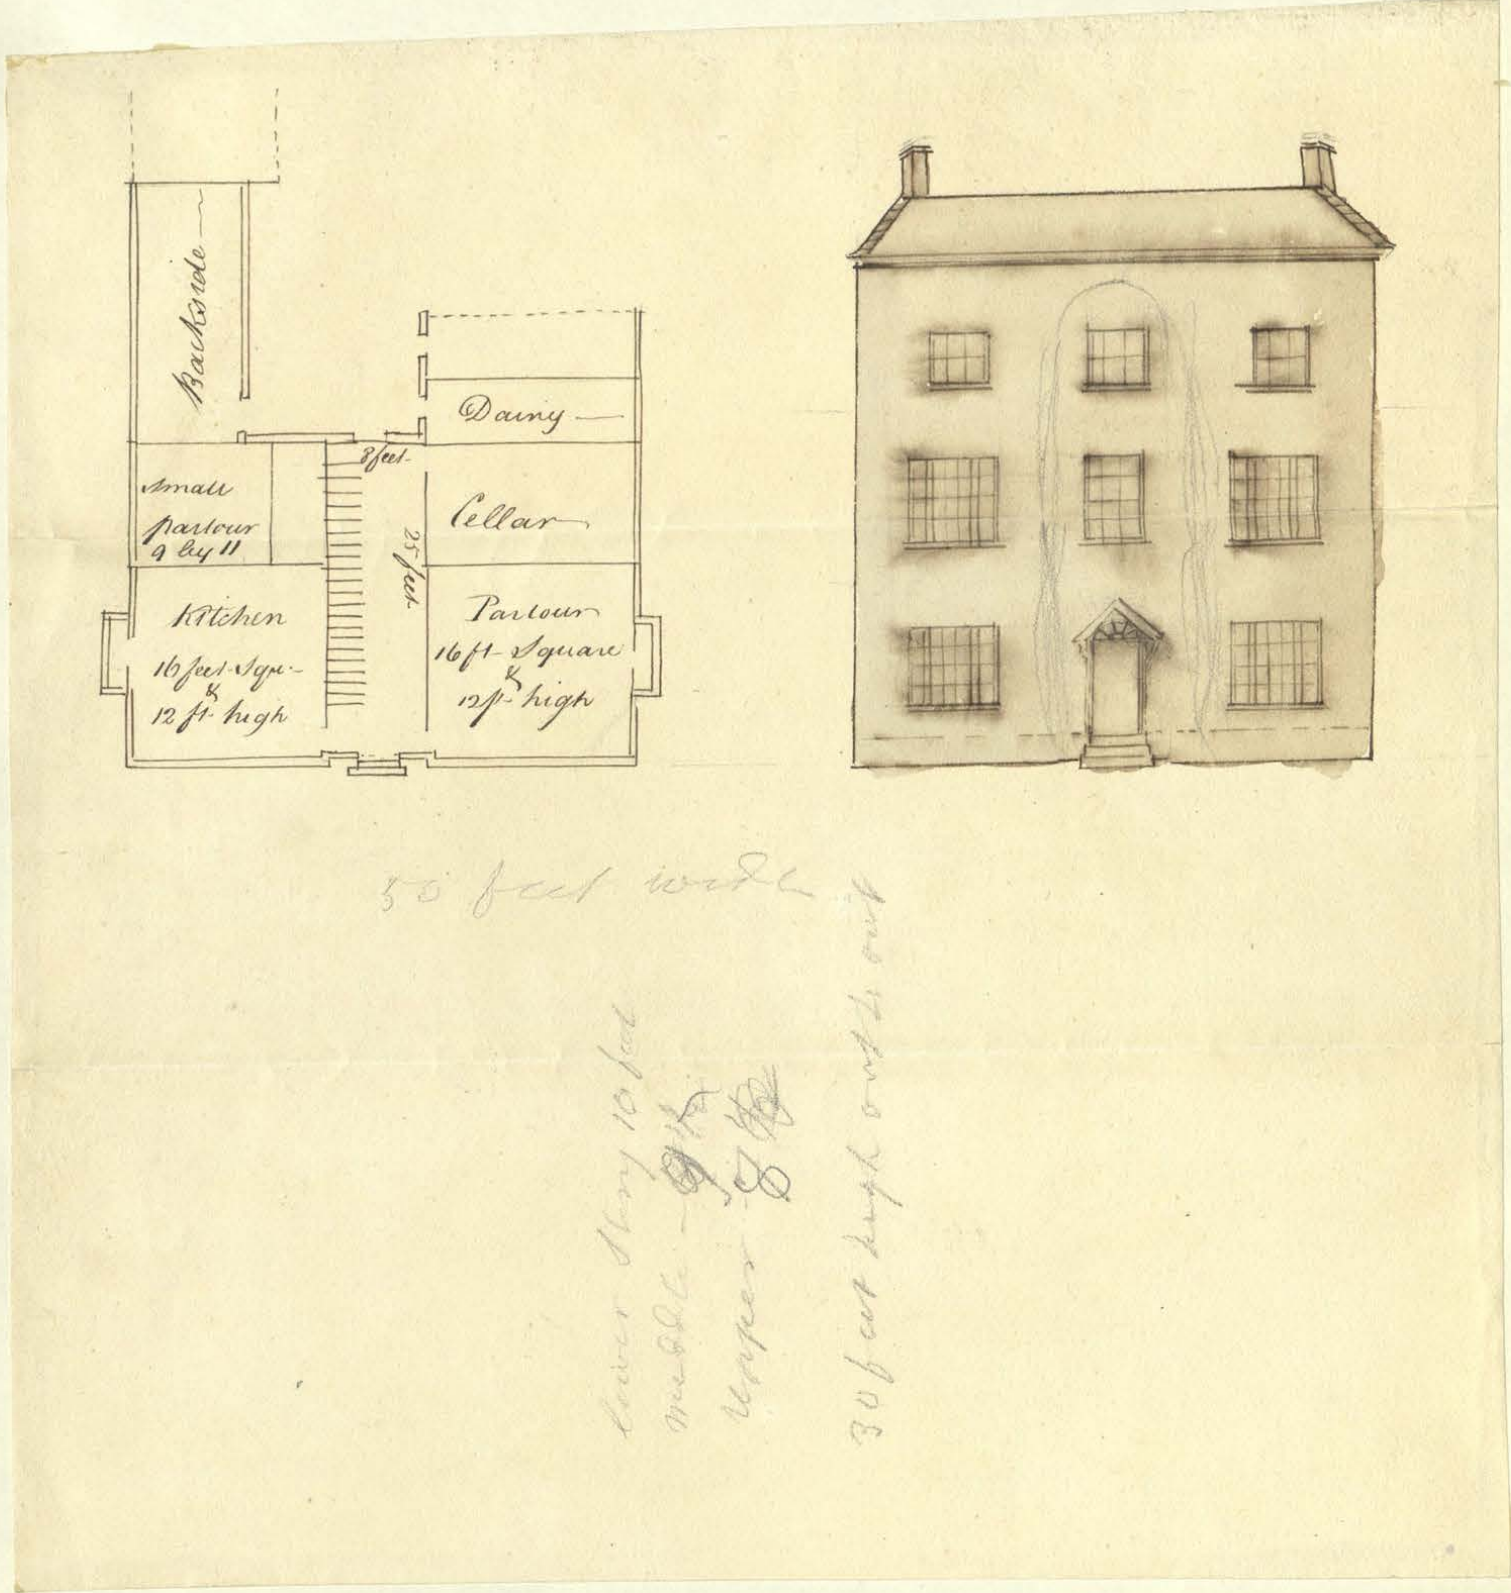 Backside
Dairy
8 feet
small
parlour
9 by 11
25 feet
Cellar
Kitchen
16 feet squ.
&
12 ft high
Parlour
16 ft Square
&
12 ft high
50 feet wide
lower Story 10 feet
middle - 9
Upper - 8
30 feet high out to out